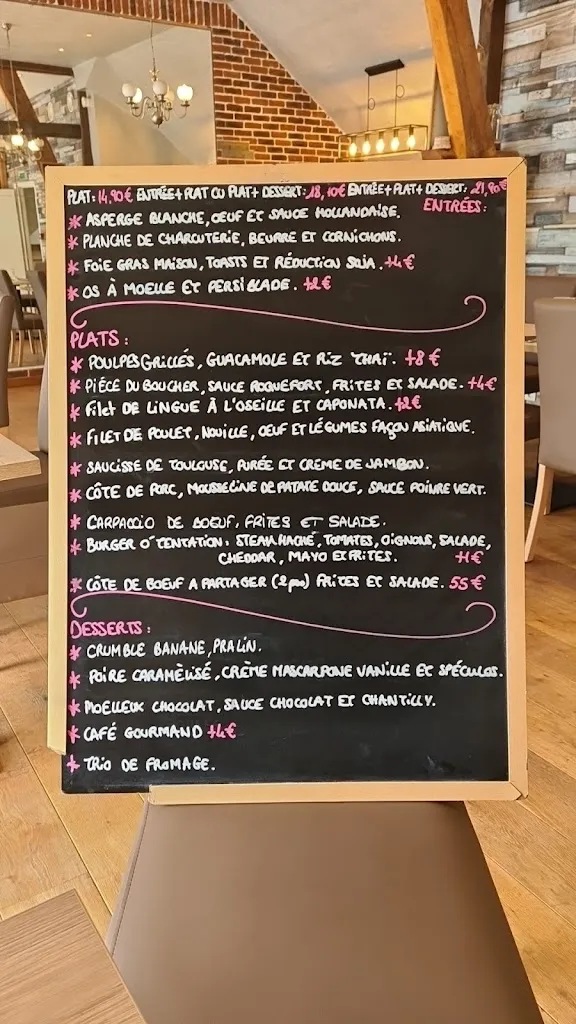 PLAT: 14,90€ ENTRÉE+PLAT OU PLAT+ DESSERT: 18,90€ ENTRÉE+PLAT+ DESSERT: 21,90€
ENTRÉES:
* ASPERGE BLANCHE, OEUF ET SAUCE HOLLANDAISE.
* PLANCHE DE CHARCUTERIE, BEURRE ET CORNICHONS.
* FOIE GRAS MAISON, TOASTS ET RÉDUCTION SOJA. +4€
* OS À MOELLE ET PERSILLADE. +2€
PLATS:
* POULPES GRILLÉS, GUACAMOLE ET RIZ THAÏ. +8€
* PIÉCE DU BOUCHER, SAUCE ROQUEFORT, FRITES ET SALADE. +4€
* FILET DE LINGUE À L'OSEILLE ET CAPONATA. +2€
* FILET DE POULET, NOUILLE, OEUF ET LÉGUMES FAÇON ASIATIQUE.
SAUCISSE DE TOULOUSE, PURÉE ET CREME DE JAMBON.
* CÔTE DE PORC, MOUSSELINE DE PATATE DOUCE, SAUCE POIVRE VERT.
* CARPACCIO DE BOEUF, FRITES ET SALADE.
* BURGER O'TENTATION: STEAK HACHÉ, TOMATES, OIGNONS, SALADE,
CHEDDAR, MAYO ET FRITES. +1€
* CÔTE DE BOEUF A PARTAGER (2 ) FRITES ET SALADE. 55€
DESSERTS:
* CRUMBLE BANANE, PRALIN.
* POIRE CARAMÈLISÉ, CRÈME MASCARPONE VANILLE ET SPÉCULOS.
* MOELLEUX CHOCOLAT, SAUCE CHOCOLAT ET CHANTILLY.
* CAFÉ GOURMAND +4€
+ TRIO DE FROMAGE.